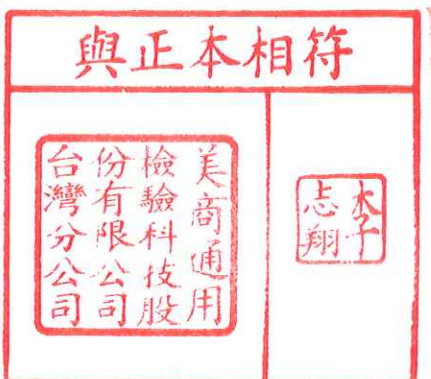 與正本相符
美商通用
檢驗科技股
份有限公司
台灣分公司
李
志翔